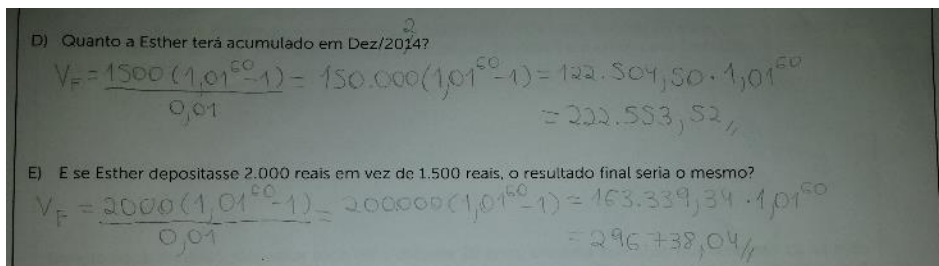 D) Quanto a Esther terá acumulado em Dez/2024?
V_F = 1500 (1,01^60 - 1) / 0,01 = 150.000 (1,01^60 - 1) = 122.504,50 . 1,01^60
= 222.553,52 //
E) E se Esther depositasse 2.000 reais em vez de 1.500 reais, o resultado final seria o mesmo?
V_F = 2000 (1,01^60 - 1) / 0,01 = 200000 (1,01^60 - 1) = 163.339,34 . 1,01^60
= 296.738,04 //